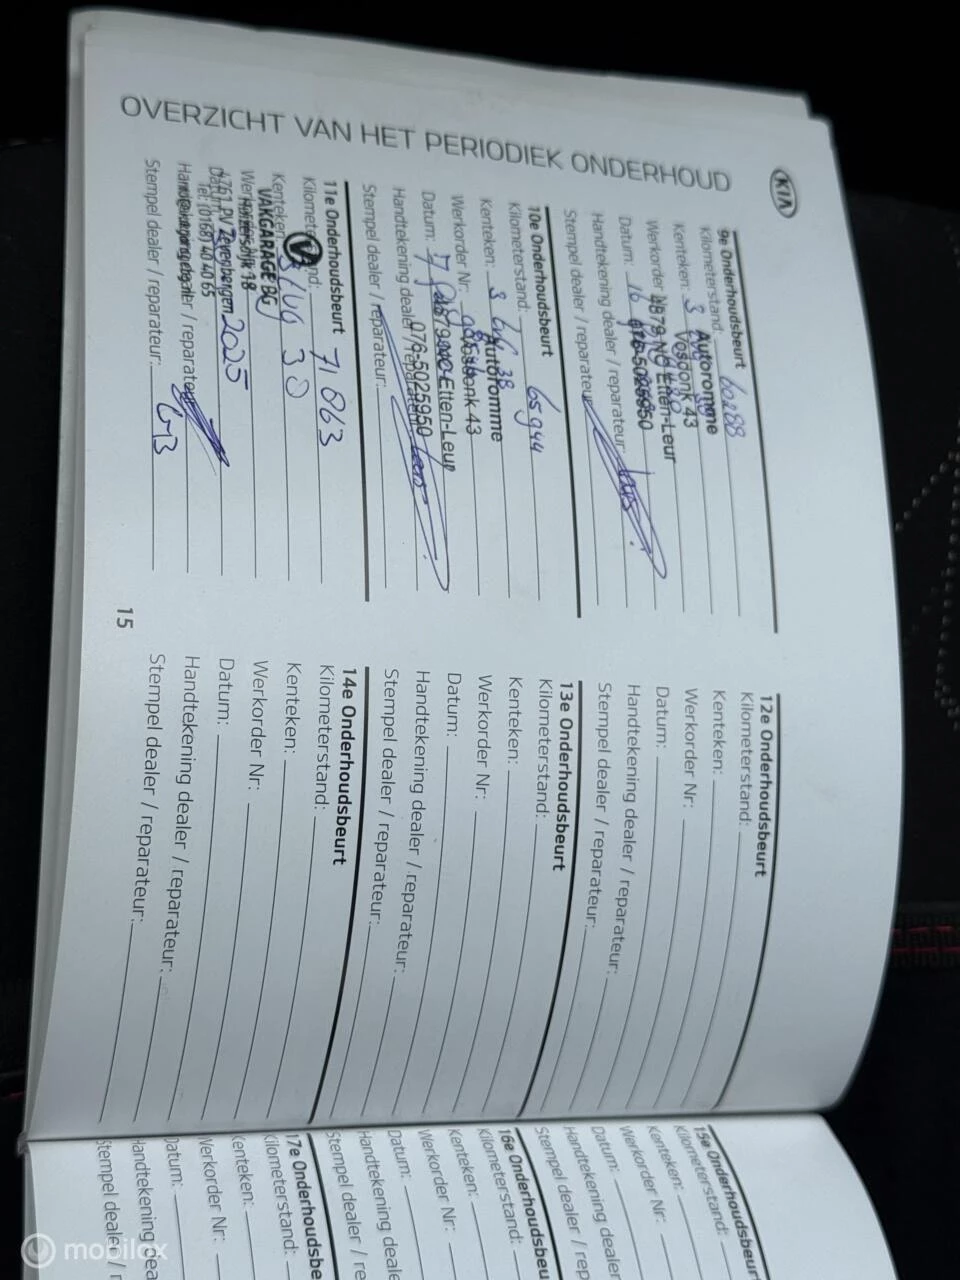 OVERZICHT VAN HET PERIODIEK ONDERHOUD
KIA
9e Onderhoudsbeurt
Kilometerstand: 60288
Kenteken:
Autoromme
Vosdonk 43
Werkorder
4879 NC Etten-Leur
Datum: 16
076-5025950
Handtekening dealer / reparateur:
Stempel dealer / reparateur:
10e Onderhoudsbeurt
Kilometerstand: 65944
Kenteken:
Autoromme
Vosdonk 43
Werkorder Nr:
Etten-Leur
Datum: 7
076-5025950
Handtekening dealer / reparateur:
Stempel dealer / reparateur:
11e Onderhoudsbeurt
Kilometerstand: 71863
Kenteken:
VAKGARAGE BG
Hazeldijk 18
4761 PV Zevenbergen
Datum: 2025
Tel: (0168) 40 40 65
Handtekening dealer / reparateur:
Stempel dealer / reparateur:
12e Onderhoudsbeurt
Kilometerstand:
Kenteken:
Werkorder Nr:
Datum:
Handtekening dealer / reparateur:
Stempel dealer / reparateur:
13e Onderhoudsbeurt
Kilometerstand:
Kenteken:
Werkorder Nr:
Datum:
Handtekening dealer / reparateur:
Stempel dealer / reparateur:
14e Onderhoudsbeurt
Kilometerstand:
Kenteken:
Werkorder Nr:
Datum:
Handtekening dealer / reparateur:
Stempel dealer / reparateur:
15
15e Onderhoudsbeur
Kilometerstand:
Kenteken:
Werkorder Nr:
Datum:
Handtekening dealer / rep
Stempel dealer / rep
16e Onderhoudsbeu
Kilometerstand:
Kenteken:
Werkorder Nr:
Datum:
Handtekening deale
Stempel dealer / re
17e Onderhoudsbe
Kilometerstand:
Kenteken:
Werkorder Nr:
Datum:
Handtekening dea
Stempel dealer / r
mobilox